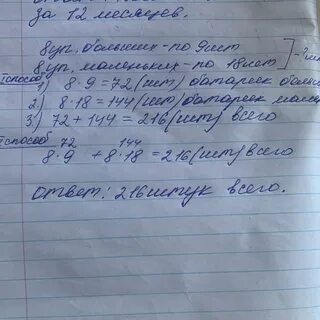 за 12 месяцев.
8уп. больших - по 9шт
8уп. маленьких - по 18шт
Iспособ
1) 8·9=72(шт) батареек больш
2) 8·18=144(шт) батареек мал
3) 72+144=216(шт) всего
способ 72 144
8·9 +8·18=216(шт) всего
ответ: 216 штук всего.